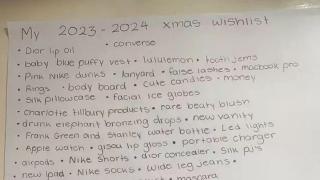 My 2023-2024 xmas wishlist
• Dior lip oil • converse
• baby blue puffy vest • lululemon • tooth jems
• Pink Nike dunks • lanyard • false lashes • macbook pro
• Rings • body board • cute candles • money
• Silk pillowcase • facial ice globes
• charlotte tillbury products • rare beaty blush
• drunk elephant bronzing drops • new vanity
• Frank Green and Stanley water bottle • Led lights
• Apple watch • gisou lip gloss • portable charger
• airpods • Nike Shorts • dior concealer • Silk PJ's
• new Ipad • Nike socks • wide leg jeans •
mascara